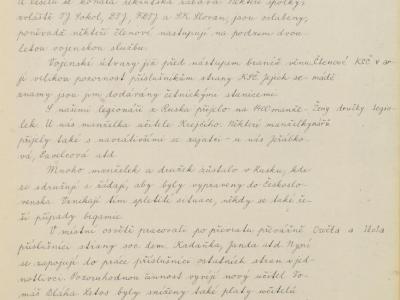 U Veselí se konala rekrutská zábava. Některé spolky,
zvláště Tj Sokol, DTJ, FDTJ a SK Slovan, jsou oslabeny,
poněvadž někteří členové nastupují na podzim dvou
letou vojenskou službu.
Vojenské útvary již před nástupem branců věnu členové KSČ v ar
jí velikou pozornost příslušníkům strany KSČ. Jejich se máté
znamy jsou jim dodávány četnickými stanicemi.
S našimi legionáři z Ruska přijelo na 1400 manžel- Ženy družky legio-
lek. U nás manželka učitele Krejčího. Některé manželky nářů
přijely také s navrátivšími se zajatci - u nás Jeřábko-
vá, Pavelcová atd.
Mnoho manželek a družek zůstalo v Rusku, kde
se sdružují a žádají, aby byly vypraveny do Českoslo-
venska. Vznikají tím spletité situace, někdy se také ře-
ší případy bigamie.
V místní osvětě pracovali po převratu převážně Osvěta a škola
příslušníci strany soc. dem. Kadaňka, Janda atd. Nyní
se zapojují do práce příslušníci ostatních stran i jed-
notlivci. Pozoruhodnou činnost vyvíjí nový učitel To-
máš Bláha. Letos byly sníženy také platy učitelů